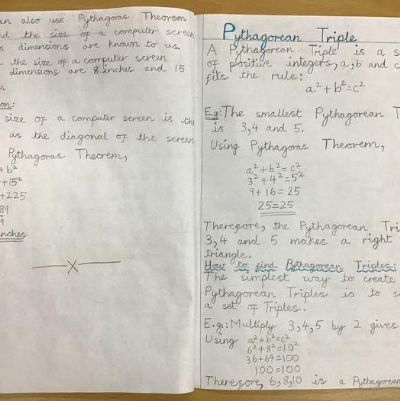 an also use Pythagoras Theorem
nd the size of a computer screen
s dimensions are known to us.
the size of a computer screen
dimensions are 8 inches and 15
s.
on:
size of a computer screen is the
as the diagonal of the screen
Pythagoras Theorem,
+b²
+15²
+225
89
9
inches
Pythagorean Triple
A Pythagorean Triple is a s
of positive integers, a, b and c
fits the rule:
a²+b²=c²
E.g:The smallest Pythagorean T
is 3,4 and 5.
Using Pythagoras Theorem,
a²+b²=c²
3²+4²=5²
9+16=25
25=25
Therefore, the Pythagorean Tri
3,4 and 5 makes a right
triangle.
How to find Pythagorean Triples:
The simplest way to create
Pythagorean Triples is to s
a set of Triples.
E.g:Multiply 3,4,5 by 2 gives
Using a²+b²=c²
6²+8²=10²
36+64=100
100=100
Therefore, 6,8,10 is a Pythagorean